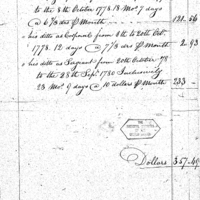 to the 8th October 1778. 18 Mos. 7 days
@ 6 2/3 drs ⅌ Month 121 - 56
his ditto as Corporal from 8th to 20th Octr.
1778. 12 days @ 7 1/3 drs ⅌ Month 2 - 93
his ditto as Sergeant from 20th October 78
to the 28th Sepr. 1780 Inclusively
23 Mos. 9 days @ 10 dollars ⅌ Month 233 -
Dollars 357.49